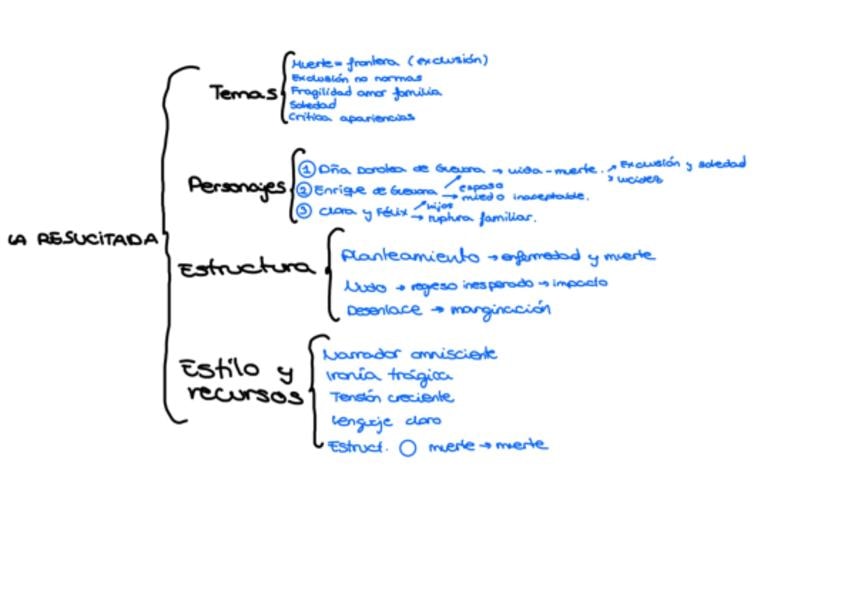 LA RESUCITADA
Temas
Muerte = frontera (exclusión)
Exclusión no normas
Fragilidad amor familia
Soledad
Crítica apariencias
Personajes
① Dña Dorotea de Guevara → vida - muerte. ↗ Exclusión y soledad
↘ lucidez
② Enrique de Guevara ↗ esposo
→ miedo inaceptable.
③ Clara y Félix ↗ hijos
→ ruptura familiar.
Estructura
Planteamiento → enfermedad y muerte
Nudo → regeso inesperado → impacto
Desenlace → marginación
Estilo y
recursos
Narrador omnisciente
Ironía trágica
Tensión creciente
Lenguaje claro
Estruct. ◯ muerte → muerte